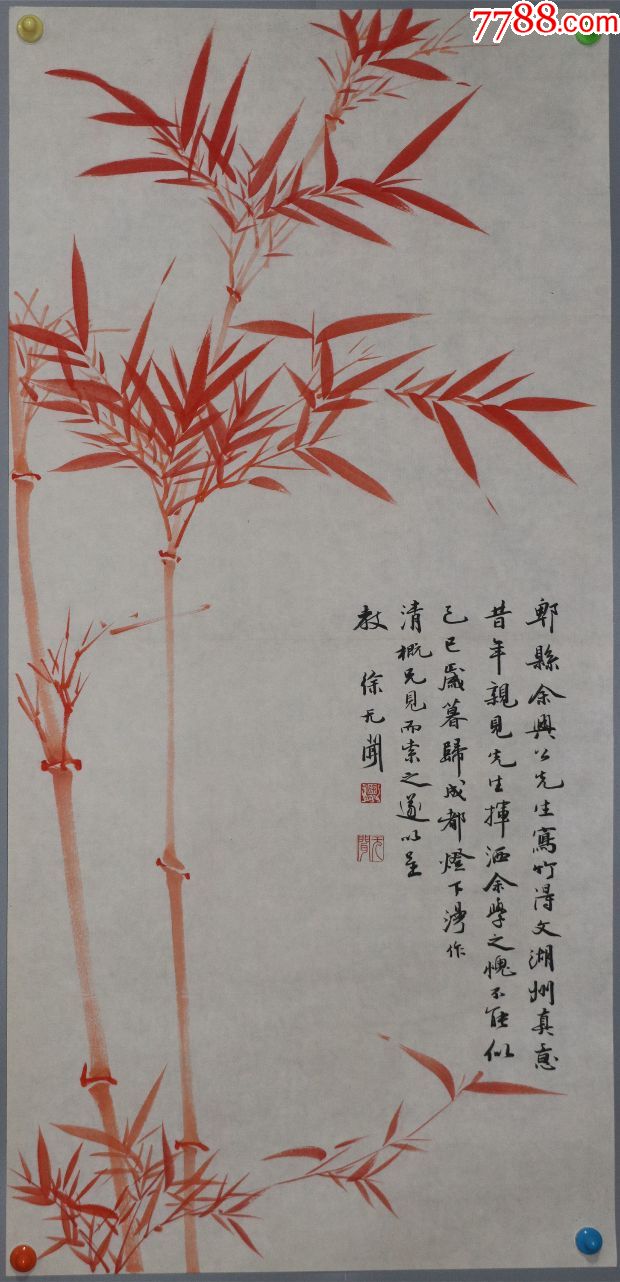 7788.com
郫縣余興公先生寫竹得文湖州真意
昔年親見先生揮洒余學之愧不能似
己巳歲暮歸成都燈下漫作
清概兄見而索之遂以呈
教 徐无聞
无聞